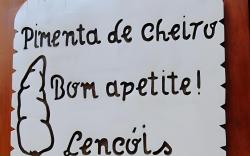 Pimenta de cheiro
Bom apetite!
Lençóis